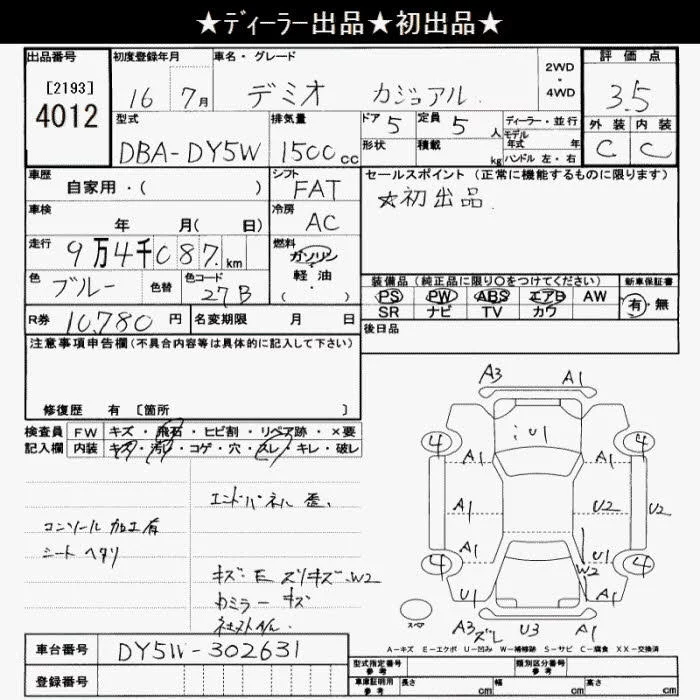 ★ディーラー出品★初出品★
出品番号 初度登録年月 車名・グレード 2WD・4WD 評価点
[2193] 4012 16 7月 デミオ カジュアル 3.5
型式 排気量 ドア 定員 ディーラー・並行 外装 内装
DBA-DY5W 1500cc 5 5人 モデル年式 年 C C
形状 積載 kg ハンドル 左・右
車歴 シフト セールスポイント(正常に機能するものに限ります)
自家用・( ) FAT ★初出品
車検 冷房
年 月( 日) AC
走行 燃料
9万4千087km ガソリン
色 色替 色コード 軽・油
ブルー 27B ( )
装備品(純正品に限り○をつけてください) 新車保証書
PS PW ABS エアB AW 有・無
SR ナビ TV カワ
R券 10,780円 名変期限 月 日 後日品
注意事項申告欄(不具合内容等は具体的に記入して下さい)
修復歴 有 [箇所 ]
検査員 FW キズ・飛石・ヒビ割・リペア跡・×要
記入欄 内装 キズ・汚レ・コゲ・穴・スレ・キレ・破レ
エンドパネル 歪、
コンソール 加工有
シート ヘタリ
キズ・E ズリキズ・W2
カミラー キズ
A3 A1
U1
4 4
A1 A1
A1 U2 U2
A1 U1
4 W2 4
U1 A1
A3 ズレ U3 A1
スペア
A-キズ E-エクボ U-凹み W-補修跡 S-サビ C-腐食 XX-交換済
車台番号 DY5W-302631
登録番号
型式指定番号 参考 類別区分番号 参考
車庫証明用 参考 長さ cm 幅 cm 高さ cm